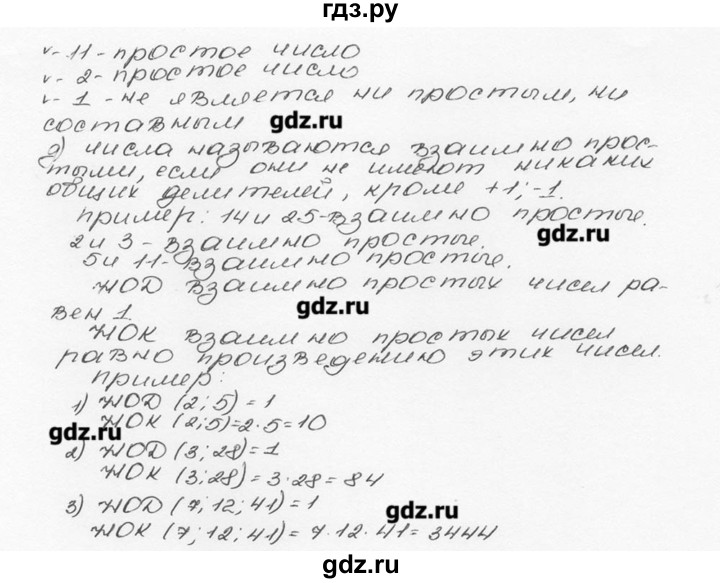 гдз.ру
v- 11 - простое число
v- 2 - простое число
v- 1 - не является ни простым, ни
составным gdz.ru
г) числа называются взаимно прос-
тыми, если они не имеют никаких
общих делителей, кроме +1; -1.
Пример: 14 и 25 - взаимно простые.
2 и 3 - взаимно простые. gdz.ru
5 и 11 - взаимно простые.
НОД взаимно простых чисел ра-
вен 1 gdz.ru
НОК взаимно простых чисел
равно произведению этих чисел.
Пример:
1) НОД (2; 5) = 1
НОК (2; 5) = 2 · 5 = 10
gdz.ru
2) НОД (3; 28) = 1
НОК (3; 28) = 3 · 28 = 84
3) НОД (7; 12; 41) = 1 gdz.ru
НОК (7; 12; 41) = 7 · 12 · 41 = 3444
gdz.ru